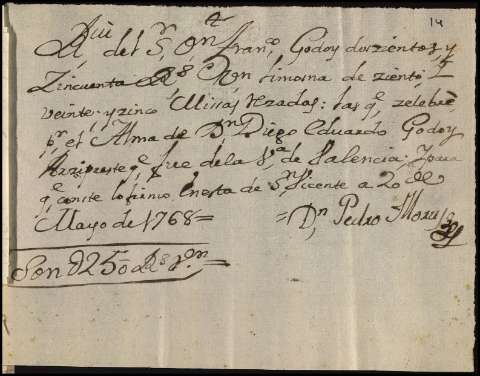 14
Rui del Sr. Dn Franco Godoy doszientos y
Zincuenta Rs Von limosna de ziento
veinte y zinco Missas rezadas: las qe zelebré
pr el Alma de Dn Diego Eduardo Godoy
Arzipreste qe fue de la Va de Valencia; Y para
qe conste lo firmo En esta de Sn Vizente a 20 de
Mayo de 1768 =
= Dn Pedro
Son 250 Rs Von =